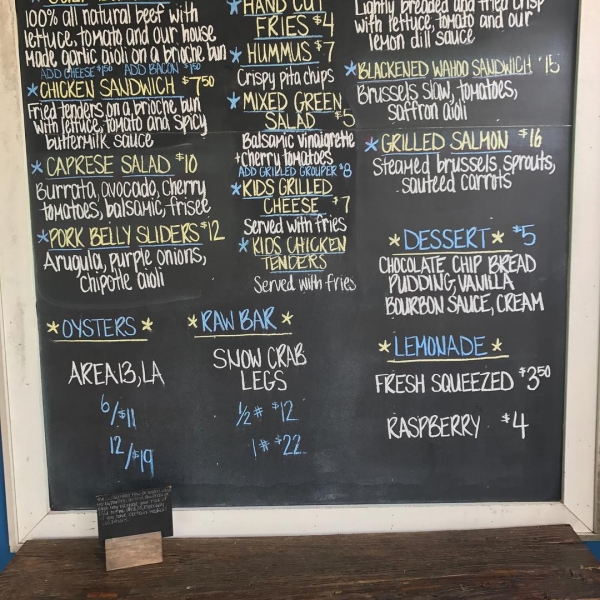 100% all natural beef with
lettuce, tomato and our house
made garlic aioli on a brioche bun
ADD CHEESE $1.50 ADD BACON $1.50
*CHICKEN SANDWICH $7.50
Fried tenders on a brioche bun
with lettuce, tomato and spicy
buttermilk sauce
*CAPRESE SALAD $10
Burrata, avocado, cherry
tomatoes, balsamic, frisée
*PORK BELLY SLIDERS $12
Arugula, purple onions,
chipotle aioli
*OYSTERS*
AREA 13, LA
6/$11
12/$19
*HAND CUT
FRIES $4
*HUMMUS $7
Crispy pita chips
*MIXED GREEN
SALAD $5
Balsamic vinaigrette
+cherry tomatoes
ADD GRILLED GROUPER $8
*KIDS GRILLED
CHEESE $7
Served with fries
*KIDS CHICKEN
TENDERS
Served with fries
*RAW BAR*
SNOW CRAB
LEGS
1/2 # $12
1 # $22
Lightly breaded and fried crisp
with lettuce, tomato and our
lemon dill sauce
*BLACKENED WAHOO SANDWICH $15
Brussels slaw, tomatoes,
saffron aioli
*GRILLED SALMON $16
Steamed brussels sprouts,
sauteed carrots
*DESSERT* $5
CHOCOLATE CHIP BREAD
PUDDING, VANILLA
BOURBON SAUCE, CREAM
*LEMONADE*
FRESH SQUEEZED $3.50
RASPBERRY $4